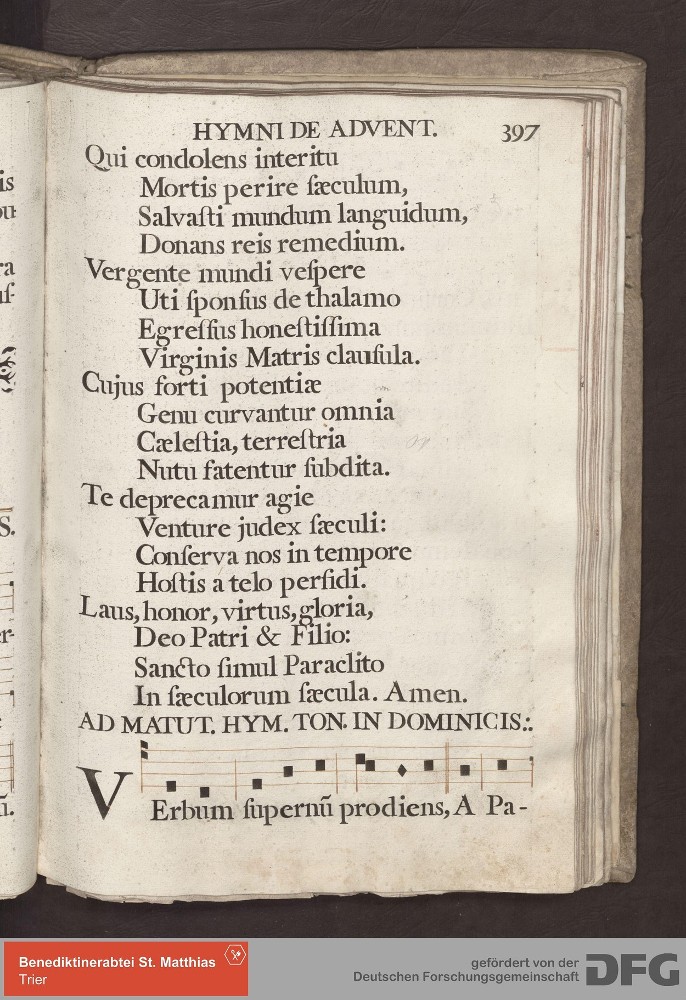 HYMNI DE ADVENT. 397
Qui condolens interitu
Mortis perire sæculum,
Salvaſti mundum languidum,
Donans reis remedium.
Vergente mundi veſpere
Uti ſponſus de thalamo
Egreſſus honeſtiſſima
Virginis Matris clauſula.
Cujus forti potentiæ
Genu curvantur omnia
Cæleſtia, terreſtria
Nutu fatentur ſubdita.
Te deprecamur agie
Venture judex ſæculi:
Conſerva nos in tempore
Hoſtis a telo perfidi.
Laus, honor, virtus, gloria,
Deo Patri & Filio:
Sancto ſimul Paraclito
In ſæculorum ſæcula. Amen.
AD MATUT. HYM. TON. IN DOMINICIS:.
VErbum ſupernū prodiens, A Pa-
Benediktinerabtei St. Matthias
Trier
gefördert von der
Deutschen Forschungsgemeinschaft
DFG